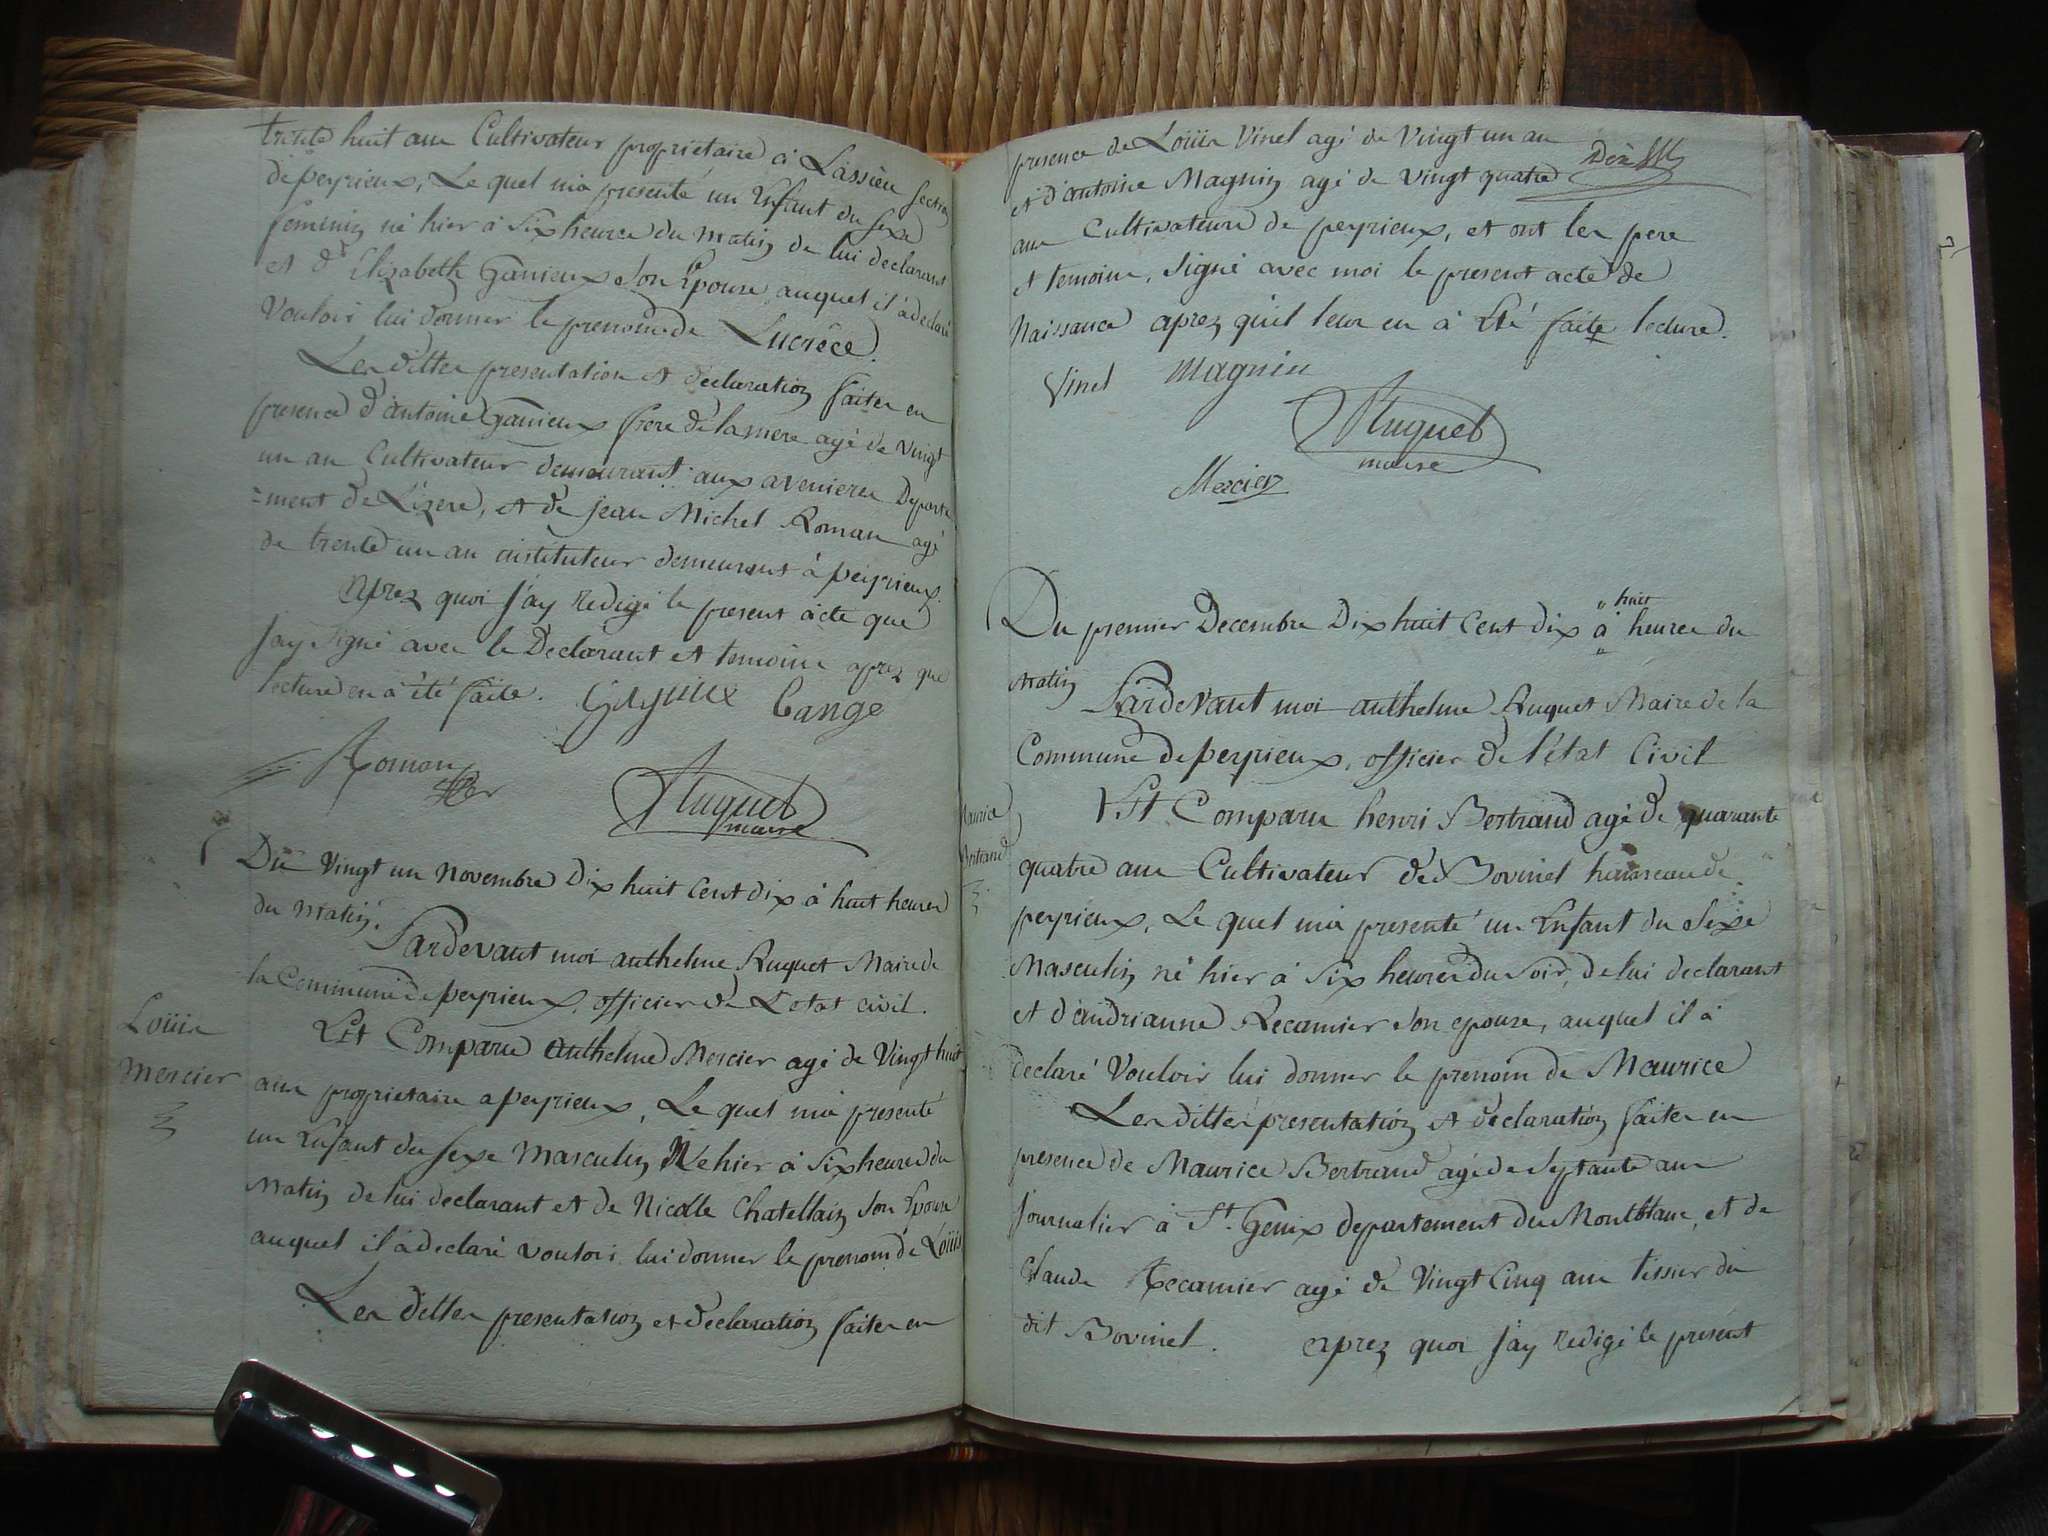 trente huit ans Cultivateur proprietaire à Lassieu section
de peyrieux, Le quel m'a presenté un Enfant du sexe
feminin né hier à Six heures du matin de lui declarant
et d'Elizabeth Ganieux son Epouse, auquel il à declaré
Vouloir lui donner le prenom de Lucrèce.
Les dittes presentation et declaration faites en
presence d'antoine Ganieux frere de la mere agé de vingt
un an Cultivateur demeurant aux avenieres Departe
=ment de Lizere, et de jean Michel Roman agé
de trente un an instituteur demeurant à peyrieux.
Aprez quoi j'ay Redigé le present acte que
j'ay signé avec le Declarant et temoins aprez que
lecture en à été faite. Cange
Roman
Ruquet
maire
Du Vingt un novembre Dix huit Cent dix à huit heures
du Matin.
Pardevant moi anthelme Ruquet Maire de
la Commune de peyrieux, officier de L'etat civil.
Loüis
Mercier
Est Comparu anthelme Mercier agé de Vingt huit
ans proprietaire a peyrieux, Le quel m'a presenté
un Enfant du sexe Masculin Né hier à Six heures du
Matin de lui declarant et de Nicolle Chatellain son Epouse
auquel il à declaré vouloir lui donner le prenom de Loüis
Les dittes presentation et declaration faites en
presence de Loüis Vinel agé de Vingt un an
et d'antoine Magnin agé de vingt quatre
ans Cultivateurs de peyrieux, et ont les pere
et temoins, signé avec moi le present acte de
Naissance aprez qu'il leur en à Eté faite lecture.
Vinel Magnin
Ruquet
maire
Mercier
huit
Du premier Decembre Dix huit Cent dix à heures du
Matin
Pardevant moi anthelme Ruquet Maire de la
Commune de peyrieux, officier de l'état Civil
Maurice
Bertrand
Est Comparu henri Bertrand agé de quarante
quatre ans Cultivateur de Bovinel hameau de
peyrieux, Le quel m'a presenté un Enfant du Sexe
Masculin né hier à Six heures du Soir, de lui declarant
et d'andrianne Recamier son epouse, auquel il à
declaré Vouloir lui donner le prenom de Maurice
Les dittes presentation et declaration faites en
presence de Maurice Bertrand agé de Septante ans
journalier à St. Genix departement du Montblanc, et de
Claude Recamier agé de Vingt Cinq ans tissier du
dit Bovinel. Aprez quoi j'ay Redigé le present